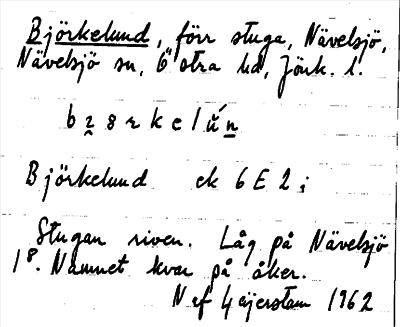 Björkelund, förr stuga, Nävelsjö,
Nävelsjö sn, Östra hd, Jönk. l.
Björkelund ek 6E2;
Stugan riven. Låg på Nävelsjö
1⁸. Namnet kvar på åker.
N ef Hajerstam 1962